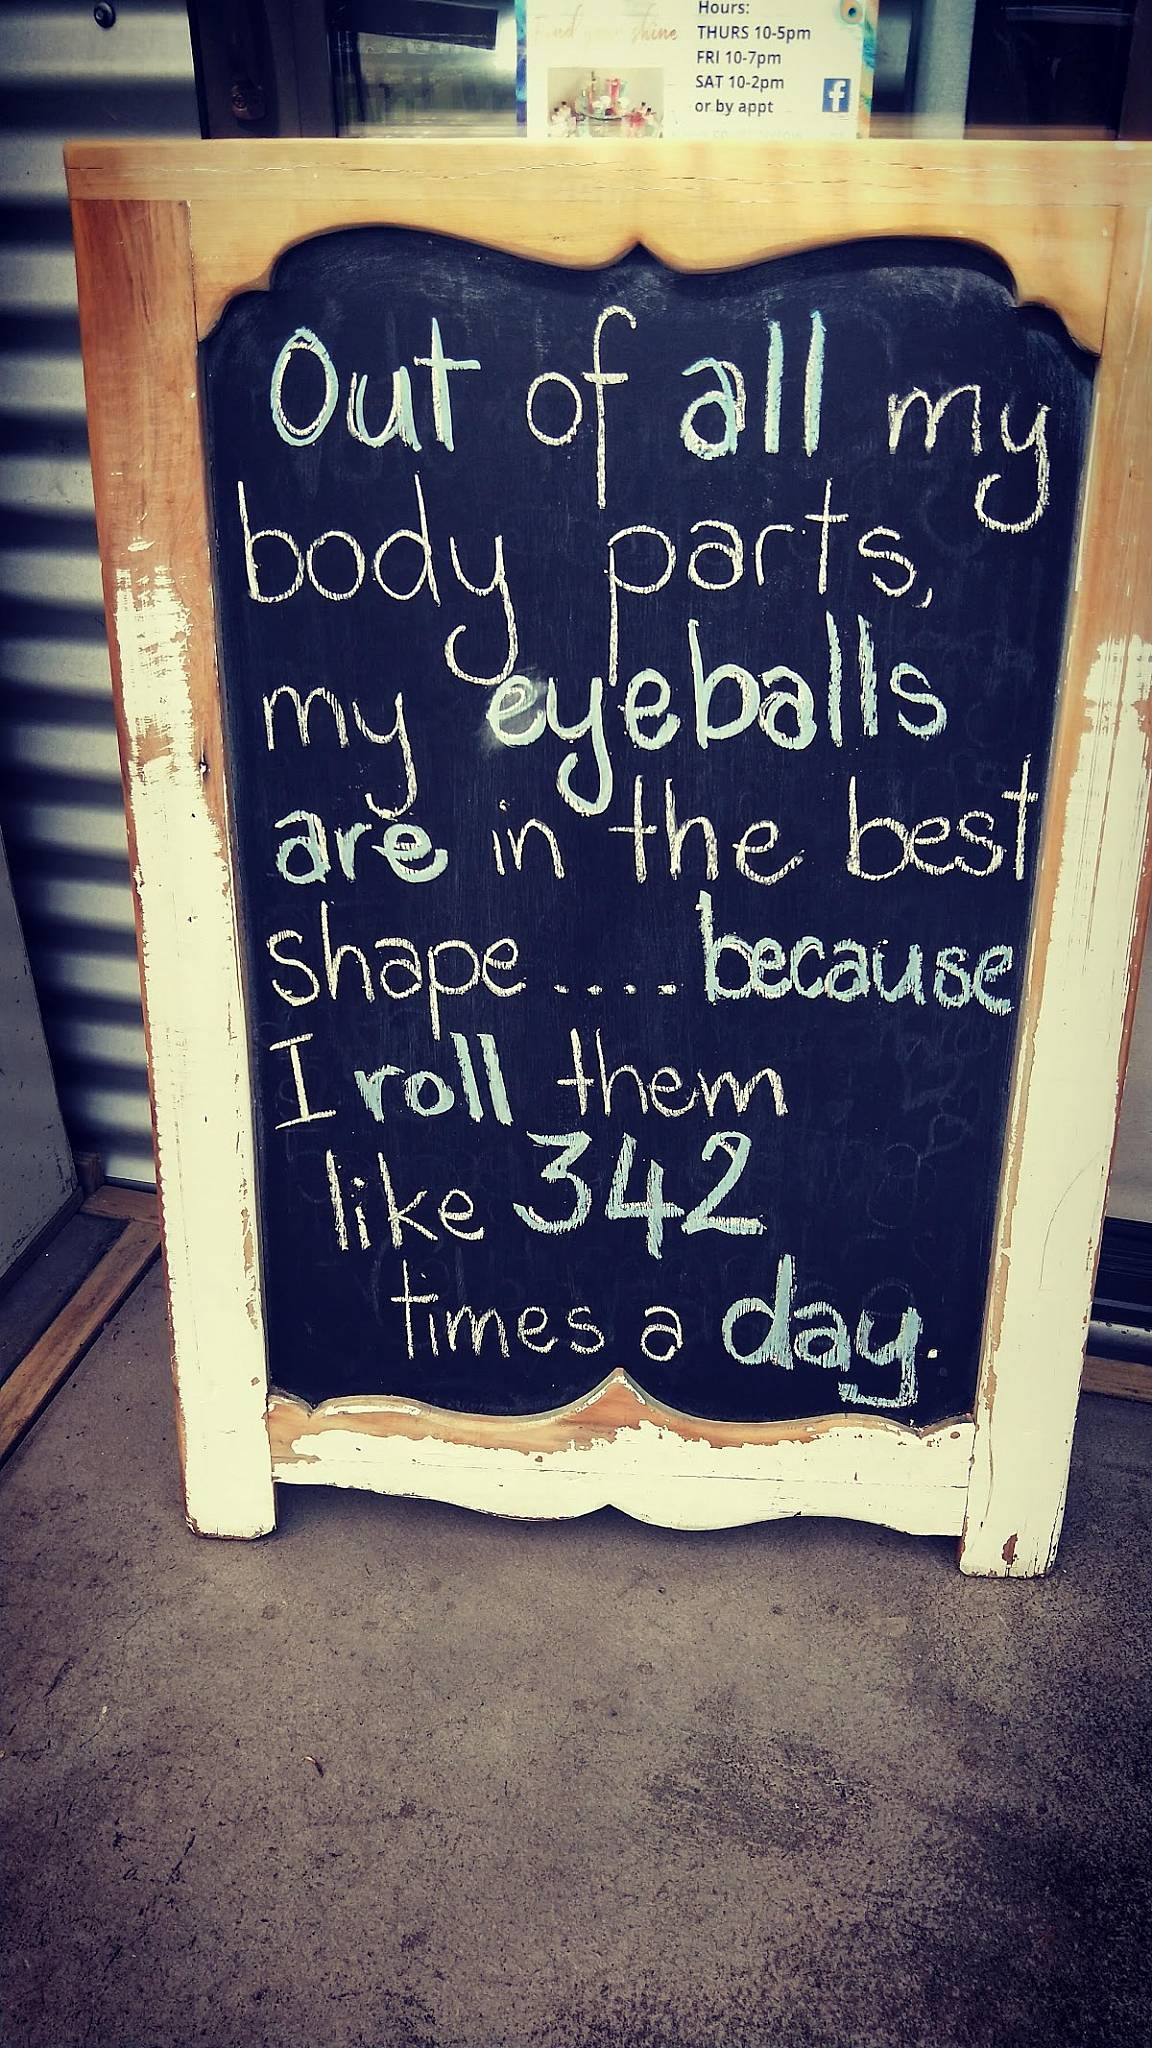 Find your shine
Hours:
THURS 10-5pm
FRI 10-7pm
SAT 10-2pm
or by appt
f
Out of all my
body parts,
my eyeballs
are in the best
shape .... because
I roll them
like 342
times a day.